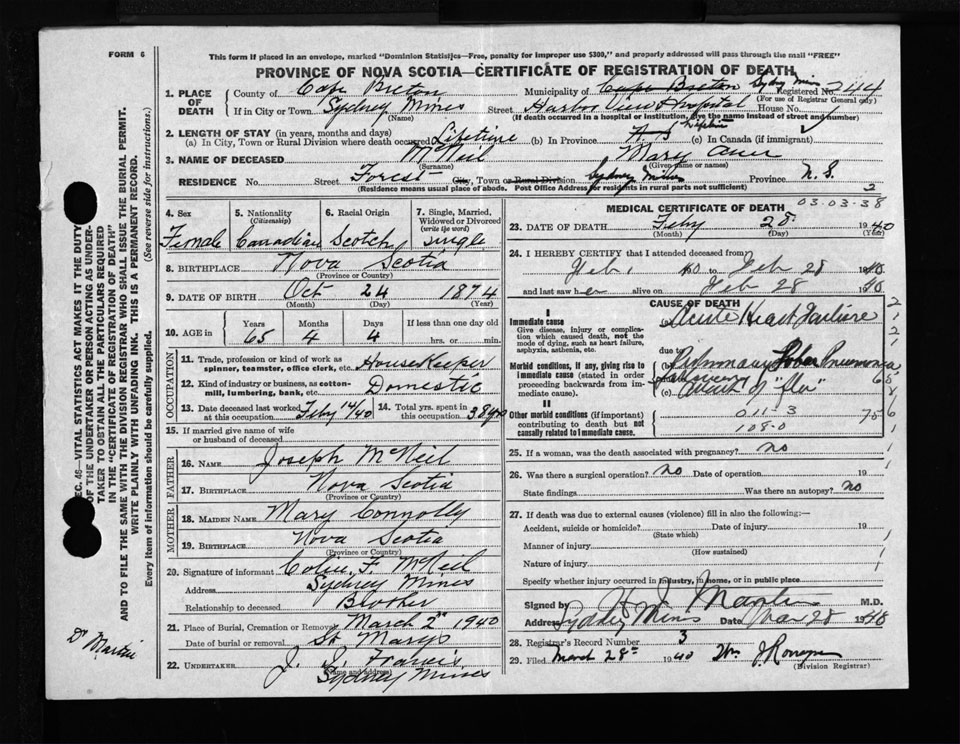 FORM 6
This form if placed in an envelope, marked "Dominion Statistics—Free, penalty for improper use $300," and properly addressed will pass through the mail "FREE"
PROVINCE OF NOVA SCOTIA—CERTIFICATE OF REGISTRATION OF DEATH
1. PLACE OF DEATH
County of Cape Breton
Municipality of Cape Breton Sydney Mines Registered No. 244
(For use of Registrar General only)
If in City or Town Sydney Mines Street Harbor View Hospital House No.
(Name)
(If death occurred in a hospital or institution, give the name instead of street and number)
2. LENGTH OF STAY (in years, months and days)
(a) In City, Town or Rural Division where death occurred Lifetime (b) In Province Lifetime (c) In Canada (if immigrant)
3. NAME OF DECEASED McNeil Mary Ann
(Surname) (Given name or names)
RESIDENCE No. Street Forest City, Town or Rural Division Sydney Mines Province N. S.
(Residence means usual place of abode. Post Office Address for residents in rural parts not sufficient)
4. Sex Female
5. Nationality (Citizenship) Canadian
6. Racial Origin Scotch
7. Single, Married, Widowed or Divorced (write the word) Single
8. BIRTHPLACE Nova Scotia
(Province or Country)
9. DATE OF BIRTH Oct 24 1874
(Month) (Day) (Year)
10. AGE in Years 65 Months 4 Days 4 If less than one day old hrs. or min.
OCCUPATION
11. Trade, profession or kind of work as spinner, teamster, office clerk, etc. HouseKeeper
12. Kind of industry or business, as cotton-mill, lumbering, bank, etc. Domestic
13. Date deceased last worked at this occupation Feby 14/40
14. Total yrs. spent in this occupation 38 yrs
15. If married give name of wife or husband of deceased
FATHER
16. NAME Joseph McNeil
17. BIRTHPLACE Nova Scotia
(Province or Country)
MOTHER
18. MAIDEN NAME Mary Connolly
19. BIRTHPLACE Nova Scotia
(Province or Country)
20. Signature of informant Colin F. McNeil
Address Sydney Mines
Relationship to deceased Brother
21. Place of Burial, Cremation or Removal March 2nd 1940
Date of burial or removal St Marys
22. UNDERTAKER J. S. Francis
(Name and address)
Sydney Mines
03.03-38
MEDICAL CERTIFICATE OF DEATH
23. DATE OF DEATH Feby 28 1940
(Month) (Day) (Year)
24. I HEREBY CERTIFY that I attended deceased from
Feb 1 40 to Feb 28 1940
and last saw her alive on Feb 28 1940
CAUSE OF DEATH
I
Immediate cause
Give disease, injury or complication which caused death, not the mode of dying, such as heart failure, asphyxia, asthenia, etc.
(a) Acute Heart Failure
due to
Morbid conditions, if any, giving rise to immediate cause (stated in order proceeding backwards from immediate cause).
(b) Pulmonary Lobar Pneumonia
(c) attack of "Flu"
II
Other morbid conditions (if important) contributing to death but not causally related to immediate cause.
011-3
108-0
25. If a woman, was the death associated with pregnancy? no
26. Was there a surgical operation? no Date of operation 19
State findings Was there an autopsy? no
27. If death was due to external causes (violence) fill in also the following:—
Accident, suicide or homicide? Date of injury 19
(State which)
Manner of injury
(How sustained)
Nature of injury
Specify whether injury occurred in industry, in home, or in public place
Signed by Martin M.D.
Address Sydney Mines Date Mar 28 1940
28. Registrar's Record Number 3
29. Filed March 28th 1940 Wm J.
(Division Registrar)
SEC. 46—VITAL STATISTICS ACT MAKES IT THE DUTY OF THE UNDERTAKER OR PERSON ACTING AS UNDERTAKER TO OBTAIN ALL THE PARTICULARS REQUIRED IN THE "CERTIFICATE OF REGISTRATION OF DEATH"
AND TO FILE THE SAME WITH THE DIVISION REGISTRAR WHO SHALL ISSUE THE BURIAL PERMIT.
WRITE PLAINLY WITH UNFADING INK. THIS IS A PERMANENT RECORD.
Every item of information should be carefully supplied. (See reverse side for instructions.)
Dr Martin